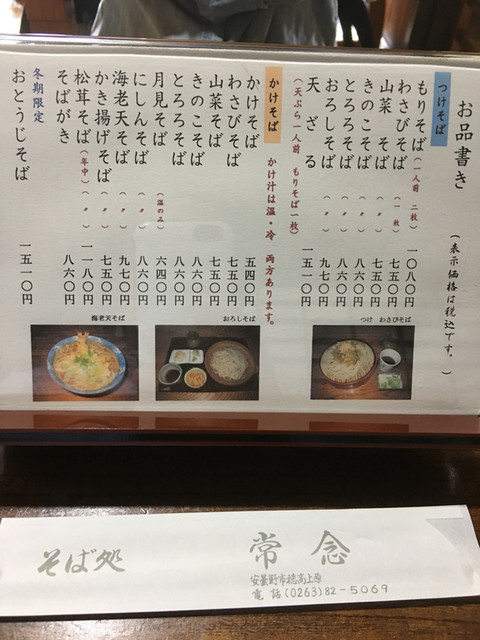 お品書き
(表示価格は税込です。)
つけそば
もりそば(一人前 二枚) 一〇八〇円
わさびそば(一枚) 七五〇円
山菜そば(〃) 七五〇円
きのこそば(〃) 八六〇円
とろろそば(〃) 八六〇円
おろしそば(〃) 九七〇円
天ざる 一五一〇円
(天ぷら一人前 もりそば一枚)
かけそば かけ汁は温・冷 両方あります。
かけそば 五四〇円
わさびそば 七五〇円
山菜そば 七五〇円
きのこそば 八六〇円
とろろそば 八六〇円
月見そば(温のみ) 六四〇円
にしんそば(〃) 八六〇円
海老天そば(〃) 九七〇円
かき揚げそば(〃) 八六〇円
松茸そば(年中)(〃) 一一八〇円
そばがき 八六〇円
冬期限定
おとうじそば 一五一〇円
つけ わさびそば
おろしそば
海老天そば
そば処 常念
安曇野市穂高上原
電話(0263)82-5069